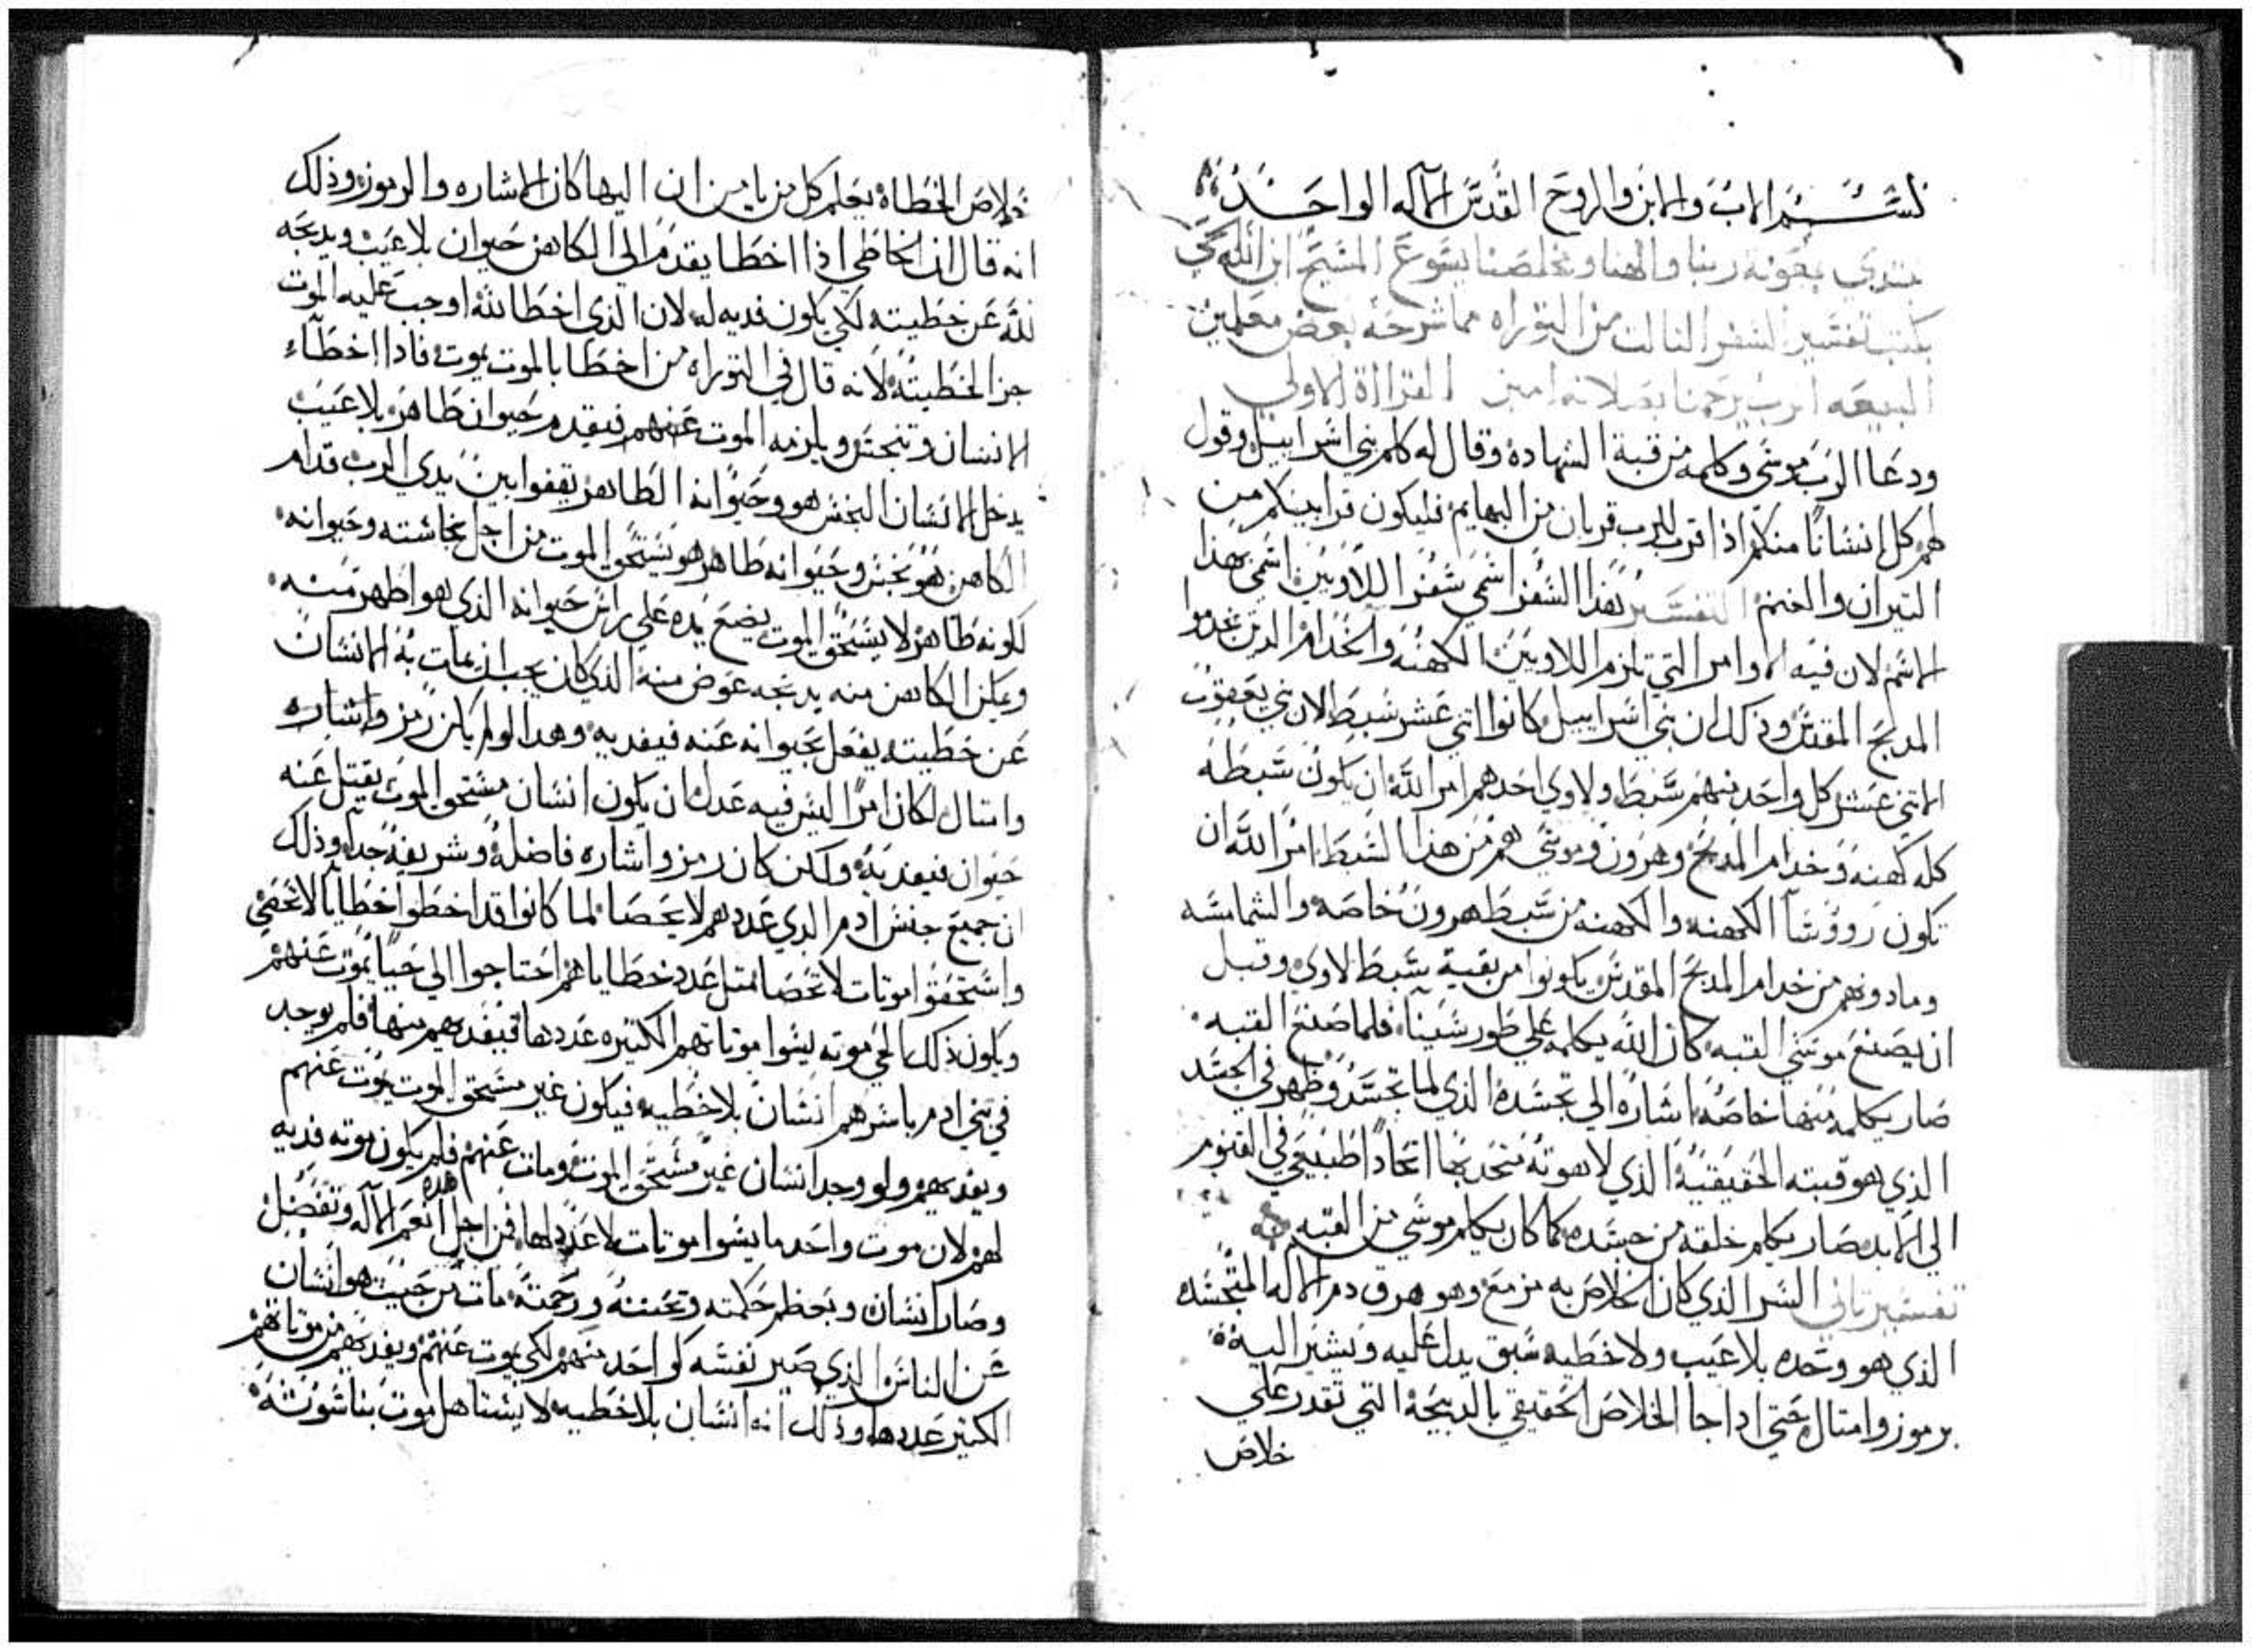 بسم الاب والابن والروح القدس الاله الواحد
نبتدي بمعونة ربنا والهنا ومخلصنا يسوع المسيح ابن الله الحي
بكتب تفسير السفر التالت من التوراه مما شرحه بعض معلمين
البيعه الرب يرحمنا بصلاته امين القراة الاولي
ودعا الرب موسي وكلمه من قبة الشهاده وقال له كلم بني اسراييل وقول
لهم كل انسانا منكم اذا قرب للرب قربان من البهايم فليكون قرابينكم من
التيران والغنم التفسير هذا السفر اسمي سفر اللاويين اسمي بهذا
الاسم لان فيه الاوامر التي تلزم اللاويين الكهنه والخدام الدين خدموا
المدبح المقدس وذلك ان بني اسراييل كانوا اتني عشر سبط لان بني يعقوب
الاتني عشر كل واحد منهم سبط ولاوي احدهم امر الله ان يكون سبطه
كله كهنه وخدام المدبح وهرون وموسي هم من هذا السبط امر الله ان
تكون رووسا الكهنه والكهنه من سبط هرون خاصه والشمامسه
وما دونهم من خدام المدبح المقدس يكونوا من بقية سبط لاوي وقبل
ان يصنع موسي القبه كان الله يكلمه علي طور سينا فلما صنع القبه
صار يكلمه منها خاصه اشاره الي تجسده الذي لما تجسد وظهر في الجسد
الذي هو قبته الحقيقيه الذي لاهوته متحد بها اتحادا طبيعي في القنوم
الي الابد صار يكلم خلقه من جسده كما كان يكلم موسي من القبه
تفسير تاني السر الذي كان الخلاص به مزمع وهو هرق دم الاله المتجسد
الذي هو وحده بلا عيب ولا خطيه سبق يدل عليه ويشير اليه
برموز وامتال حتي اداجا الخلاص الحقيقي بالدبيحة التي تقدر علي
خلاص
خلاص الخطاه يعلم كل من يامن ان اليها كان الاشاره والرموز وذلك
انه قال ان الخاطي اذا اخطا يقدم الي الكاهن حيوان بلا عيب ويدبحه
لله عن خطيته لكي يكون فديه له لان الذي اخطا لله اوجب عليه الموت
جزا الخطيته لانه قال في التوراه من اخطا بالموت يموت فادا اخطاء
الانسان وتنجس ويلزمه الموت عنهم فيقدم حيوان طاهر بلا عيب
يدخل الانسان النجس هو وحيوانه الطاهر يقفوا بين يدي الرب قدام
الكاهن هو نجس وحيوانه طاهر هو يستحق الموت من اجل نجاسته وحيوانه
لكونه طاهر لا يستحق الموت يضع يده علي راس حيوانه الذي هو اطهر منه
ويمكن الكاهن منه يدبحه عوض منه الذي كان يجب ان يمات به الانسان
عن خطيته يفعل بحيوانه عنه فيفديه وهدا لولم يكن رمز واشاره
وامتال لكان امرا ليس فيه عدل ان يكون انسان مستحق الموت يقتل عنه
حيوان فيفديه ولكن كان رمز واشاره فاضله وشريفه جدا وذلك
ان جميع جنس ادم الدي عددهم لا يحصا لما كانوا قد اخطوا خطايا لا تحصي
واستحقوا موتات لا تحصا متل عدد خطاياهم احتاجوا الي حيا يموت عنهم
ويكون ذلك الحي موته يسوا موتاتهم الكتيره عددها فيفديهم منها فلم يوجد
في بني ادم باسرهم انسان بلا خطيه فيكون غير مستحق الموت يموت عنهم
ويفديهم ولو وجد انسان غير مستحق الموت ومات عنهم فلم يكون موته فديه
لهم لان موت واحد ما يسوا موتات لا عدد لها فمن اجل هده انعم الاله وتفضل
وصار انسان وبعظم حكمته وتحننه ورحمته مات من حيت هو انسان
عن الناس الذي صير نفسه كواحد منهم لكي يموت عنهم ويفديهم من موتاتهم
الكتير عددها وذلك انه انسان بلا خطيه لا يستاهل موت بناسوته